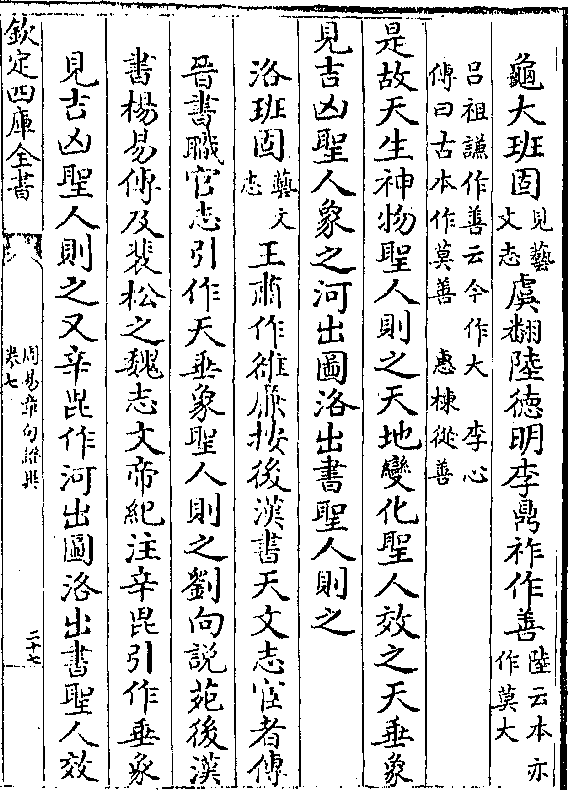 龜大班固見藝文志虞翻陸德明李鼎祚作善陸云本亦作莫大
呂祖謙作善云今作大　李心
傳曰古本作莫善　惠棟從善
是故天生神物聖人則之天地變化聖人效之天垂象
見吉凶聖人象之河出圖洛出書聖人則之
洛班固藝文志王肅作雒廉按後漢書天文志宦者傳
晉書職官志引作天垂象聖人則之劉向說苑後漢
書楊易傳及裴松之魏志文帝紀注辛毘引作垂象
見吉凶聖人則之又辛毘作河出圖洛出書聖人效
欽定四庫全書
周易章句證異
卷七
二十七